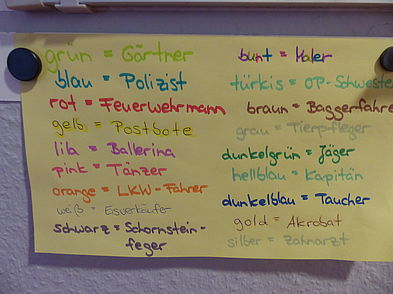 grün = Gärtner
blau = Polizist
rot = Feuerwehrmann
gelb = Postbote
lila = Ballerina
pink = Tänzer
orange = LKW-Fahrer
weiß = Eisverkäufer
schwarz = Schornstein-
feger
bunt = Maler
türkis = OP-Schwester
braun = Baggerfahre
grau = Tierpfleger
dunkelgrün = Jäger
hellblau = Kapitän
dunkelblau = Taucher
gold = Akrobat
silber = Zahnarzt